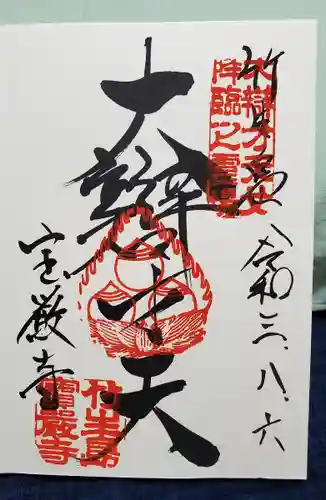 竹生島
令和三、八、六
大辯才天
宝厳寺
大辯才天女
降臨之霊
竹生島
寶嚴寺